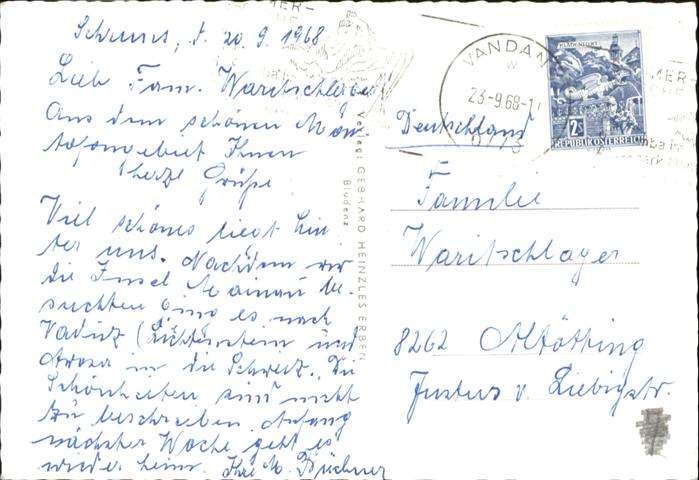 Schruns, d. 20.9.1968
Lieb Fam. Waritschlager
Aus dem schönen Mon-
tafongebiet Ihnen
herzl Grüße
Viel schönes liegt hin-
ter uns. Nachdem wir
die Insel Mainau be-
suchten ging es nach
Vaduz (Lichtenstein und
Arosa in die Schweiz. Die
Schönheiten sind nicht
zu beschreiben. Anfang
nächster Woche geht es
wieder heim. Ihre M. Büchner
Verlag: GEBHARD HEINZLES ERBEN
Bludenz
VANDAN
23.-9.68-1
KLAGENFURT
2S
REPUBLIK ÖSTERREICH
Deutschland
Familie
Waritschlager
8262 Altötting
Justus v. Liebigstr.